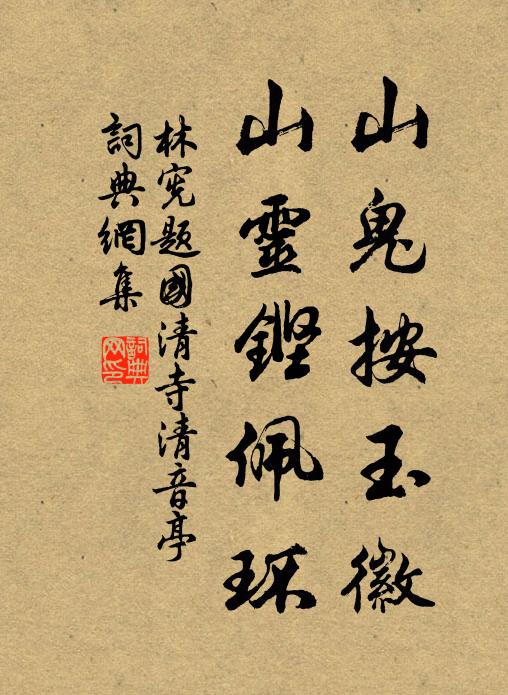 山鬼按玉徽
山靈鏗佩環
林憲題國清寺清音亭
詞典網集
詞典網印